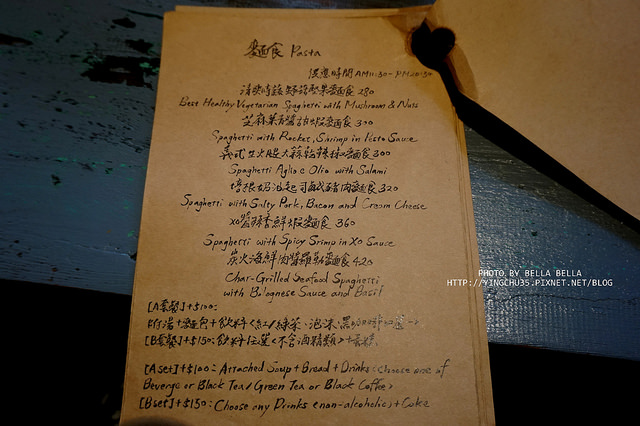 麵食 Pasta
供應時間 AM11:30 - PM20:30
清爽時蔬野菇堅果麵食 280
Best Healthy Vegetarian Spaghetti with Mushroom & Nuts
芝麻菜青醬甜蝦麵食 300
Spaghetti with Rocket, Shrimp in Pesto Sauce
義式生火腿大蒜乾辣椒麵食 300
Spaghetti Aglio e Olio with Salami
培根奶油起司鹹豬肉麵食 320
Spaghetti with Salty Pork, Bacon and Cream Cheese
XO醬辣香鮮蝦麵食 360
Spaghetti with Spicy Srimp in XO Sauce
炭火海鮮肉醬羅勒麵食 420
Char-Grilled Seafood Spaghetti
with Bolognese Sauce and Basil
[A套餐]+$100:
附湯+麵包+飲料<紅/綠茶、泡沫、黑咖啡
[B套餐]+$150: 飲料任選<不含酒精類>+蛋糕
[A set]+$100: Attached Soup+Bread+Drinks<choose one of
Beverge or Black Tea/Green Tea or Black Coffee>
[B set]+$150: Choose any Drinks <non-alcoholic>+Cake
PHOTO BY BELLA BELLA
HTTP://YINGCHU35.PIXNET.NET/BLOG